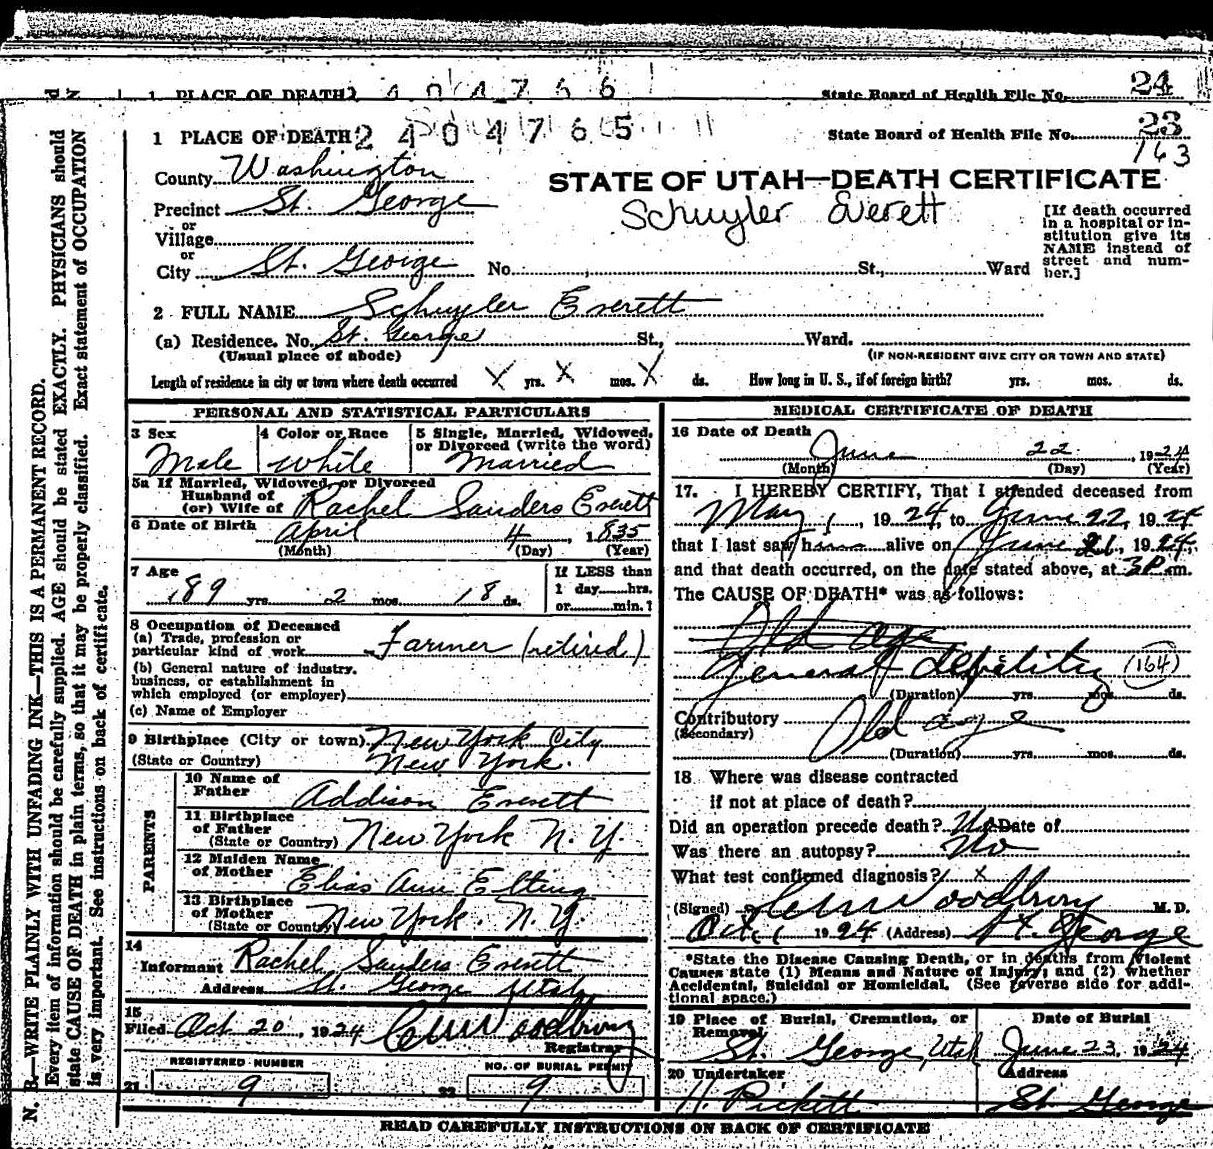 1 PLACE OF DEATH 2 4 0 4 7 6 6 State Board of Health File No. 24
1 PLACE OF DEATH 2 4 0 4 7 6 5 State Board of Health File No. 23
163
County Washington
STATE OF UTAH—DEATH CERTIFICATE
Precinct St. George
Schuyler Everett
or
Village
or
City St. George No. , St., Ward
[If death occurred
in a hospital or in-
stitution give its
NAME instead of
street and num-
ber.]
2 FULL NAME Schuyler Everett
(a) Residence. No. St. George St., Ward.
(Usual place of abode) (IF NON-RESIDENT GIVE CITY OR TOWN AND STATE)
Length of residence in city or town where death occurred X yrs. X mos. X ds. How long in U. S., if of foreign birth? yrs. mos. ds.
PERSONAL AND STATISTICAL PARTICULARS
3 Sex 4 Color or Race 5 Single, Married, Widowed,
or Divorced (write the word)
Male White Married
5a If Married, Widowed, or Divorced
Husband of
(or) Wife of Rachel Sanders Everett
6 Date of Birth April 4, 1835
(Month) (Day) (Year)
7 Age If LESS than
1 day hrs.
89 yrs. 2 mos. 18 ds. or min.?
8 Occupation of Deceased
(a) Trade, profession or
particular kind of work Farmer (retired)
(b) General nature of industry.
business, or establishment in
which employed (or employer)
(c) Name of Employer
9 Birthplace (City or town) New York City
(State or Country) New York.
PARENTS
10 Name of
Father Addison Everett
11 Birthplace
of Father
(State or Country) New York N. Y.
12 Maiden Name
of Mother Eliza Ann Elting
13 Birthplace
of Mother
(State or Country) New York. N. Y.
14
Informant Rachel Sanders Everett
Address St. George Utah
15
Filed Oct 20, 1924
Registrar
REGISTERED NUMBER NO. OF BURIAL PERMIT
21 9 22 9
MEDICAL CERTIFICATE OF DEATH
16 Date of Death June 22, 1924
(Month) (Day) (Year)
17. I HEREBY CERTIFY, That I attended deceased from
May 1, 1924, to June 22, 1924
that I last saw him alive on June 21, 1924,
and that death occurred, on the date stated above, at 3 P. m.
The CAUSE OF DEATH* was as follows:
Old age
General debility (164)
(Duration) yrs. mos. ds.
Contributory Old age
(Secondary)
(Duration) yrs. mos. ds.
18 Where was disease contracted
if not at place of death?
Did an operation precede death? No Date of
Was there an autopsy? No
What test confirmed diagnosis? X
(Signed) Woodbury M. D.
Oct. 1924 (Address) St. George
*State the Disease Causing Death, or in deaths from Violent
Causes state (1) Means and Nature of Injury; and (2) whether
Accidental, Suicidal or Homicidal. (See reverse side for addi-
tional space.)
19 Place of Burial, Cremation, or
Removal
Date of Burial
St. George, Utah June 23, 1924
20 Undertaker Address
H. Pickett St George
READ CAREFULLY INSTRUCTIONS ON BACK OF CERTIFICATE
N. B.—WRITE PLAINLY WITH UNFADING INK—THIS IS A PERMANENT RECORD.
Every item of information should be carefully supplied. AGE should be stated EXACTLY. PHYSICIANS should
state CAUSE OF DEATH in plain terms, so that it may be properly classified. Exact statement of OCCUPATION
is very important. See instructions on back of certificate.